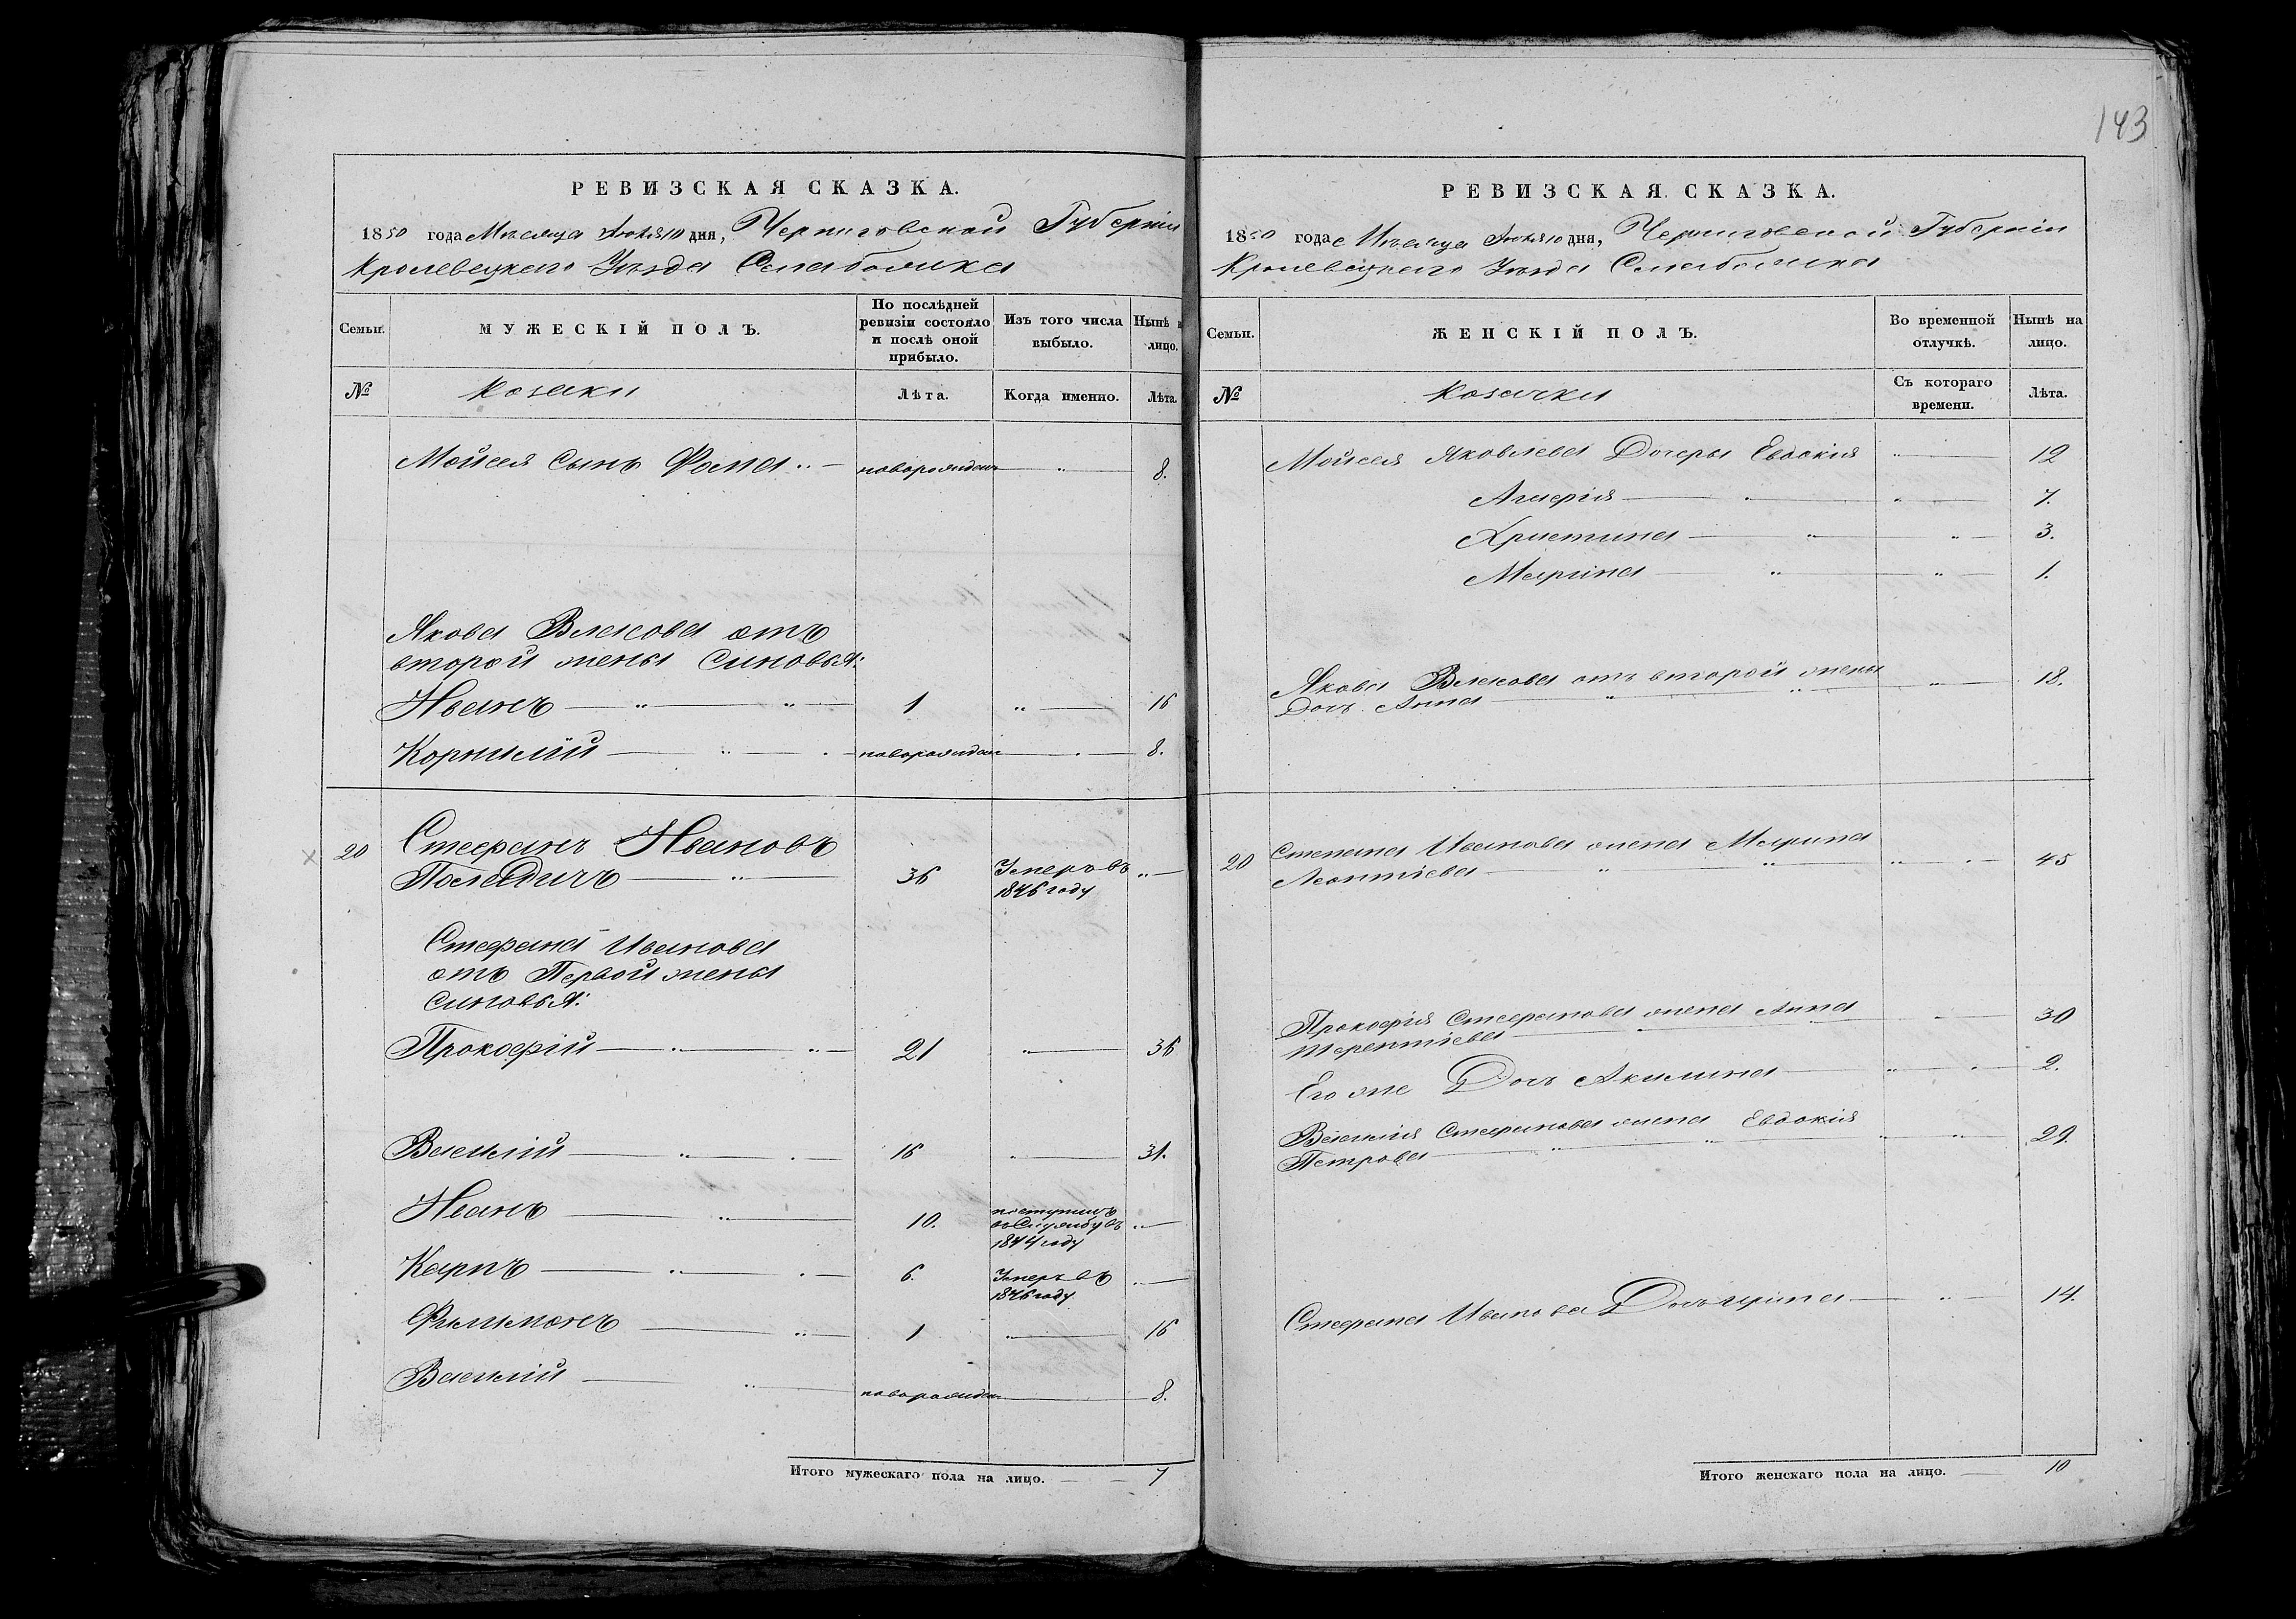 143
РЕВИЗСКАЯ СКАЗКА.
1850 года Мѣсяца Июля 10 дня, Черниговской Губерніи
Кролевецкаго Уѣзда
Семьи.
МУЖЕСКІЙ ПОЛЪ.
По послѣдней ревизіи состояло и послѣ оной прибыло.
Изъ того числа выбыло.
Нынѣ н лицо.
№
Козаки
Лѣта.
Когда именно.
Лѣта.
Мойсея Сынъ Фома новорожден 8.
Якова Власова отъ
второй жены Синовья:
Иванъ 1 16
Корнилій новорожден 8.
20 Стефанъ Ивановъ
36 Умеръ въ
1846 году
Стефана Иванова
отъ Первой жены
Синовья:
Прокофій 21 36
Василій 16 31.
Иванъ 10. поступилъ
въ Службу въ
1844 году
Карпъ 6. Умеръ въ
1846 году
Филимонъ 1 16
Василій новорожден 8.
Итого мужескаго пола на лицо. 7
РЕВИЗСКАЯ СКАЗКА.
1850 года Мѣсяца Июля 10 дня, Черниговской Губерніи
Кролевецкаго Уѣзда
Семьи.
ЖЕНСКІЙ ПОЛЪ.
Во временной отлучкѣ.
Нынѣ на лицо.
№
Козачки
Съ котораго времени.
Лѣта.
Мойсея Яковлева Дочеры Евдокия 12
7.
Христина 3.
Марина 1.
Якова Власова отъ второй жены
Дочь Анна 18.
20 Степана Иванова жена Марина
Леонтіева 45
Прокофія Стефанова жена Анна
Терентіева 30
Его же Дочь Акилина 2.
Василія Стефанова жена Евдокія
Петрова 29.
Стефана Иванова Дочь 14.
Итого женскаго пола на лицо. 10